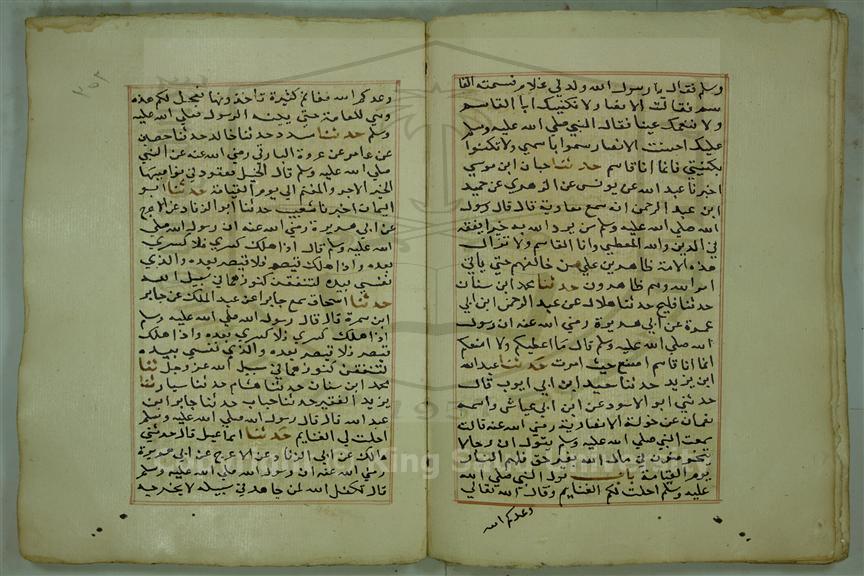 وسلم فقال يا رسول الله ولد لي غلام فسميته القا
سم فقالت الانصار لا نكنيك ابا القاسم
ولا ننعمك عينا فقال النبي صلى الله عليه وسلم
احسنت الانصار سموا باسمي ولا تكنوا
بكنيتي فانما انا قاسم حدثنا حبان ابن موسي
اخبرنا عبد الله عن يونس عن الزهري عن حميد
ابن عبد الرحمن انه سمع معاوية قال قال رسول
الله صلى الله عليه وسلم من يرد الله به خيرا يفقه
في الدين والله المعطي وانا القاسم ولا تزال
هذه الامة ظاهرين علي من خالفهم حتي ياتي
امر الله وهم ظاهرون حدثنا محمد ابن سنان
حدثنا فليح حدثنا هلال عن عبد الرحمن ابن ابي
عمرة عن ابي هريرة رضي الله عنه ان رسول
الله صلى الله عليه وسلم قال ما اعطيكم ولا امنعكم
انما انا قاسم اضع حيث امرت حدثنا عبد الله
ابن يزيد حدثنا سعيد ابن ابي ايوب قال
حدثني ابو الاسود عن ابن ابي عياش واسمه
نعمان عن خولة الانصارية رضي الله عنه قالت
سمعت النبي صلى الله عليه وسلم يقول ان رجالا
يتخوضون في مال الله بغير حق فلهم النار
يوم القيامة باب قول النبي صلى الله
عليه وسلم احلت لكم الغنايم وقال الله تعالي
وعدكم الله
وعدكم الله مغانم كثيرة تاخذونها فعجل لكم هذه
وهي للعامة حتى يبينه الرسول صلى الله عليه
وسلم حدثنا مسدد حدثنا خالد حدثنا حصين
عن عامر عن عروة البارقي رضي الله عنه عن النبي
صلى الله عليه وسلم قال الخيل معقود في نواصيها
الخير الاجر والمغنم الي يوم القيامة حدثنا ابو
اليمان اخبرنا شعيب حدثنا ابو الزناد عن الاعرج
عن ابي هريرة رضي الله عنه ان رسول الله صلى
الله عليه وسلم قال اذا هلك كسري فلا كسري
بعده واذا هلك قيصر فلا قيصر بعده والذي
نفسي بيده لتنفقن كنوزهما في سبيل الله
حدثنا اسحاق سمع جابرا عن عبد الملك عن جابر
ابن سمرة قال قال رسول الله صلى الله عليه وسلم
اذا هلك كسري فلا كسري بعده واذا هلك
قيصر فلا قيصر بعده والذي نفسي بيده
لتنفقن كنوزهما في سبيل الله عز وجل ثنا
محمد ابن سنان حدثنا هشام حدثنا سيار ثنا
يزيد الفقير حدثنا جابر ابن
عبد الله قال قال رسول الله صلى الله عليه وسلم
احلت لي الغنايم حدثنا اسماعيل قال حدثني
مالك عن ابي الزناد عن الاعرج عن ابي هريرة
رضي الله عنه ان رسول الله صلى الله عليه وسلم
قال تكفل الله لمن جاهد في سبيله لا يخرجه